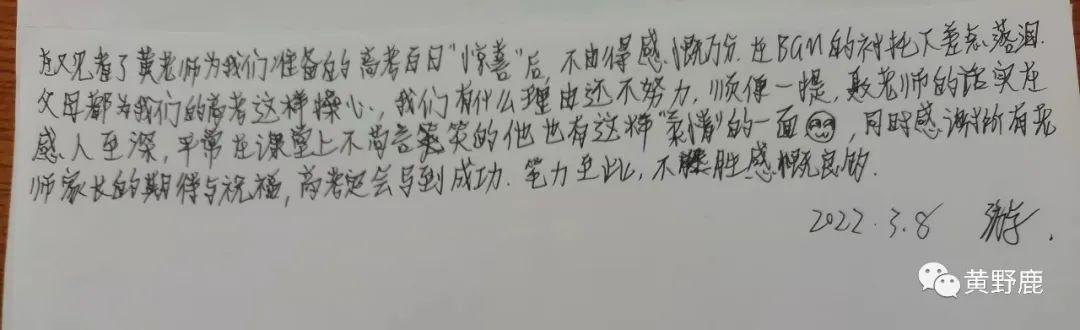 在观看了黄老师为我们准备的高考百日“惊喜”后，不由得感慨万分.在BGM的衬托下差点落泪.
父母都为我们的高考这样操心，我们有什么理由还不努力，顺便一提，聂老师的话实在
感人至深，平常在课堂上不苟言笑的他也有这样“柔情”的一面，同时感谢所有老
师家长的期待与祝福，高考定会马到成功.笔力至此，不胜感慨良多.
2022.3.8 游
黄野鹿